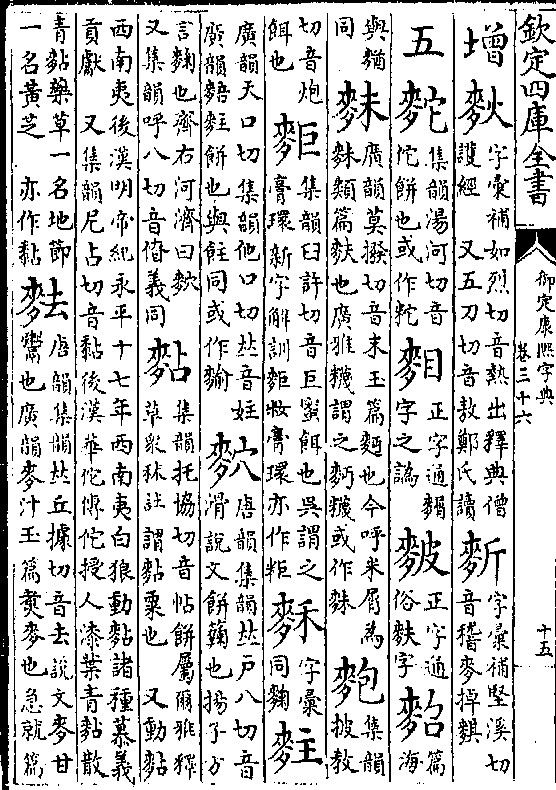 欽定四庫全書
御定康熙字典
卷三十六
十五
增
字彙補如烈切音熱出釋典僧
護經 又五刀切音敖鄭氏讀
字彙補堅溪切
音稽麥掉麩
五
集韻湯河切音
佗餅也或作
正字通
字之譌
正字通
俗麩字
篇
海
同
廣韻莫撥切音末玉篇麪也今呼米屑為
類篇麩也廣雅糲謂之麪糲或作
麭
集韻
披教
切音炮
餌也
集韻臼許切音巨蜜餌也吳謂之
膏環新字解訓粔籹膏環亦作粔
字彙
同麴
廣韻天口切集韻他口切𠀤音妵
廣韻餅也與飳同或作
唐韻集韻𠀤戶八切音
滑說文餅䴷也揚子方
言麴也齊右河濟曰
又集韻呼八切音傄義同
集韻托協切音帖餅屬爾雅釋
草衆秫註謂黏粟也 又動黏
西南夷後漢明帝紀永平十七年西南夷白狼動黏諸種慕義
貢獻 又集韻尼占切音黏後漢華佗傳佗授人漆葉青黏散
青黏藥草一名地節
一名黃芝 亦作黏
麮
唐韻集韻𠀤丘據切音去說文麥甘
鬻也廣韻麥汁玉篇煑麥也急就篇